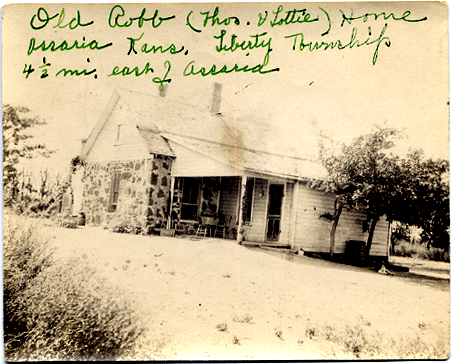 Old Robb (Thos. & Lottie) Home
Assaria Kans. Liberty Township
4 ½ mi. east of Assaria